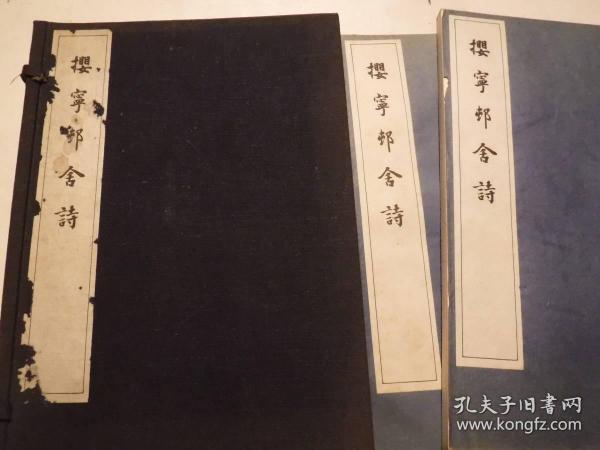 攖寧邨舍詩
攖寧邨舍詩
攖寧邨舍詩
孔夫子旧書网
www.kongfz.com